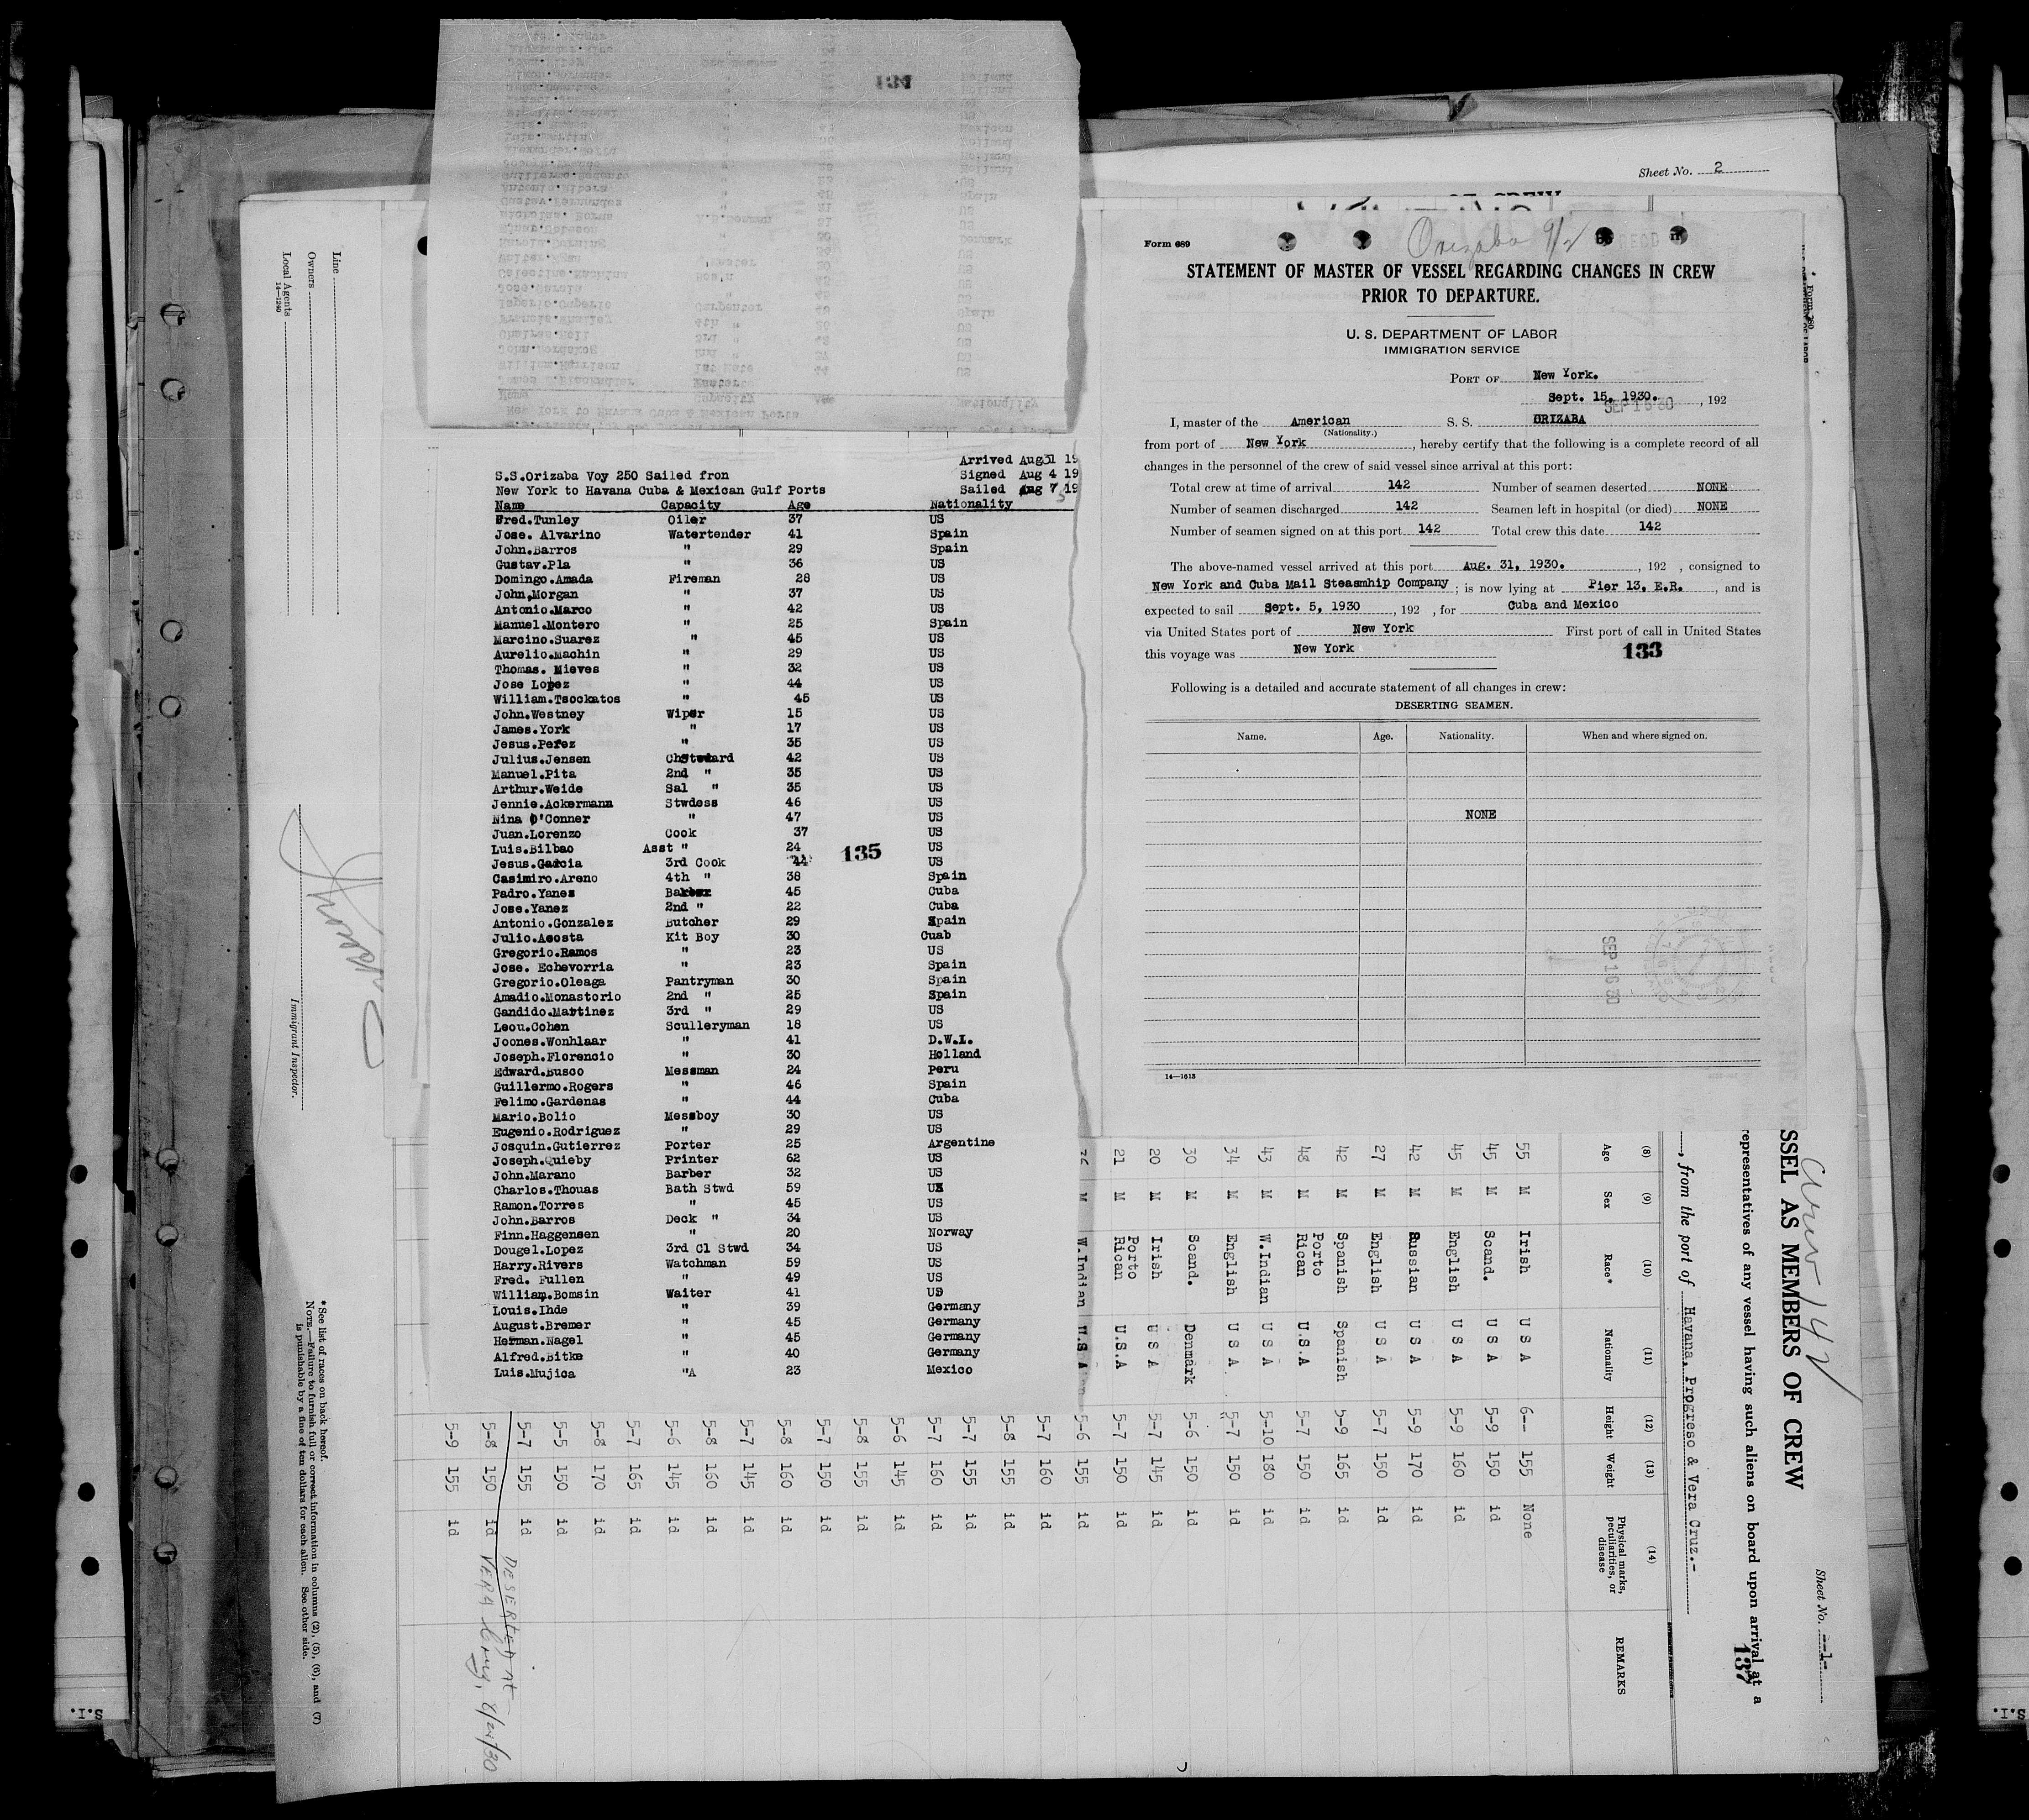 134
Sheet No. 2
Arrived Aug 31 19
S.S.Orizaba Voy 250 Sailed fron
Signed Aug 4 19
New York to Havana Cuba & Mexican Gulf Ports
Sailed Aug 7 19
5
Name Capacity Age Nationality
Fred.Tunley Oiler 37 US
Jose. Alvarino Watertender 41 Spain
John.Barros " 29 Spain
Gustav.Pla " 36 US
Domingo.Amada Fireman 28 US
John,Morgan " 37 US
Antonio.Marco " 42 US
Manuel.Montero " 25 Spain
Marcino.Suarez " 45 US
Aurelio.Machin " 29 US
Thomas. Nieves " 32 US
Jose Lopez " 44 US
William.Tsockatos " 45 US
John.Westney Wiper 15 US
James.York " 17 US
Jesus.Perez " 35 US
Julius.Jensen ChSteward 42 US
Manuel.Pita 2nd " 35 US
Arthur.Weide Sal " 35 US
Jennie.Ackermann Stwdess 46 US
Nina O'Conner " 47 US
Juan.Lorenzo Cook 37 US
Luis.Bilbao Asst " 24 US
Jesus.Garcia 3rd Cook 44 US
135
Casimiro.Areno 4th " 38 Spain
Padro.Yanes Baker 45 Cuba
Jose.Yanez 2nd " 22 Cuba
Antonio.Gonzalez Butcher 29 Spain
Julio.Acosta Kit Boy 30 Cuab
Gregorio.Ramos " 23 US
Jose. Echevorria " 23 Spain
Gregorio.Oleaga Pantryman 30 Spain
Amadio.Monastorio 2nd " 25 Spain
Gandido.Martinez 3rd " 29 US
Leou.Cohen Sculleryman 18 US
Joones.Wonhlaar " 41 D.W.I.
Joseph.Florencio " 30 Holland
Edward.Busco Messman 24 Peru
Guillermo.Rogers " 46 Spain
Felimo.Gardenas " 44 Cuba
Mario.Bolio Messboy 30 US
Eugenio.Rodriguez " 29 US
Josquin.Gutierrez Porter 25 Argentine
Joseph.Quieby Printer 62 US
John.Marano Barber 32 US
Charlos.Thouas Bath Stwd 59 US
Ramon.Torres " 45 US
John.Barros Deck " 34 US
Finn.Haggensen " 20 Norway
Dougel.Lopez 3rd Cl Stwd 34 US
Harry.Rivers Watchman 59 US
Fred. Fullen " 49 US
William.Bomsin Waiter 41 US
Louis.Ihde " 39 Germany
August.Bremer " 45 Germany
Herman.Nagel " 45 Germany
Alfred.Bitke " 40 Germany
Luis.Mujica "A 23 Mexico
Form 689
Orizaba 9/2
STATEMENT OF MASTER OF VESSEL REGARDING CHANGES IN CREW
PRIOR TO DEPARTURE.
U. S. DEPARTMENT OF LABOR
IMMIGRATION SERVICE
PORT OF New York.
Sept. 15, 1930. , 192
SEP 16 30
I, master of the American S. S. ORIZABA
(Nationality.)
from port of New York, hereby certify that the following is a complete record of all
changes in the personnel of the crew of said vessel since arrival at this port:
Total crew at time of arrival 142 Number of seamen deserted NONE
Number of seamen discharged 142 Seamen left in hospital (or died) NONE
Number of seamen signed on at this port 142 Total crew this date 142
The above-named vessel arrived at this port Aug. 31, 1930. , 192 , consigned to
New York and Cuba Mail Steasmhip Company ; is now lying at Pier 13, E.R. , and is
expected to sail Sept. 5, 1930 , 192 , for Cuba and Mexico
via United States port of New York First port of call in United States
this voyage was New York
133
Following is a detailed and accurate statement of all changes in crew:
DESERTING SEAMEN.
Name. Age. Nationality. When and where signed on.
NONE
SEP 16 30
14—1613
Line
Owners
Local Agents
14—1240
Immigrant Inspector.
* See list of races on back hereof.
NOTE.—Failure to furnish full or correct information in columns (2), (5), (6), and (7)
is punishable by a fine of ten dollars for each alien. See other side.
Sheet No. -1-
Crew 142
SSEL AS MEMBERS OF CREW
representatives of any vessel having such aliens on board upon arrival at a
137
, from the port of Havana, Progreso & Vera Cruz.-
(8) (9) (10) (11) (12) (13) (14)
Age Sex Race* Nationality Height Weight Physical marks, peculiarities, or disease REMARKS
55 M Irish U S A 6-- 155 None
45 M Scand. U S A 5-9 150 id
45 M English U S A 5-9 160 id
42 M Russian U S A 5-9 170 id
27 M English U S A 5-7 150 id
42 M Spanish Spanish 5-9 165 id
48 M Porto Rican U.S.A 5-7 150 id
43 M W.Indian U S A 5-10 180 id
34 M English U S A 5-7 150 id
30 M Scand. Denmark 5-6 150 id
20 M Irish U S A 5-7 145 id
21 M Porto Rican U.S.A 5-7 150 id
M W.Indian U.S 5-6 155 id
5-7 160 id
5-8 155 id
5-7 155 id
5-7 160 id
5-6 145 id
5-8 155 id
5-7 150 id
5-8 160 id
5-7 145 id
5-8 160 id
5-6 145 id
5-7 165 id
5-8 170 id
5-5 150 id
5-7 155 id
5-8 150 id
DESERTED AT
VERA Cruz, 8/21/30
5-9 155 id
S.I.
S.I.